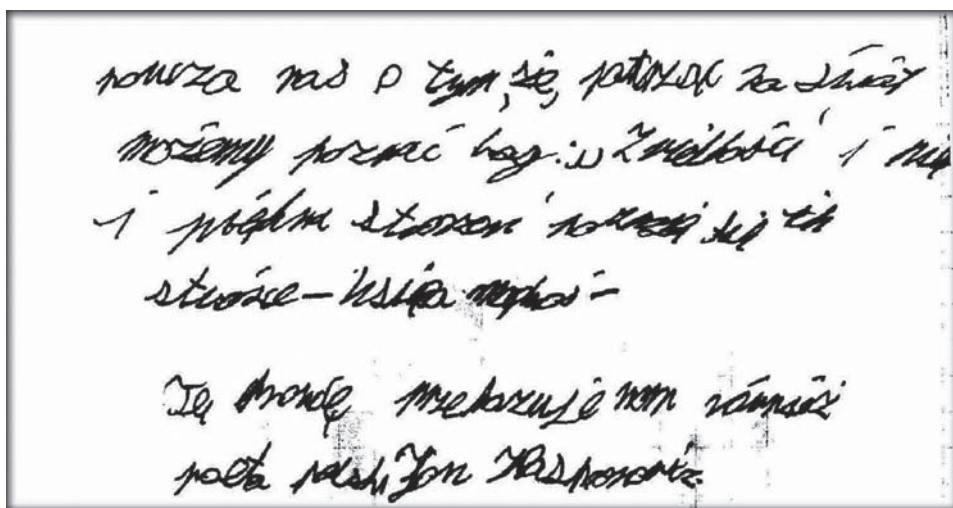 poucza nas o tym, że, patrząc na świat
możemy poznać Boga: „Z wielkości i
i piękna stworzeń poznaje się ich
stwórcę – księga mądrości –
Tę prawdę przekazuje nam również
poeta polski Jan Kasprowicz.